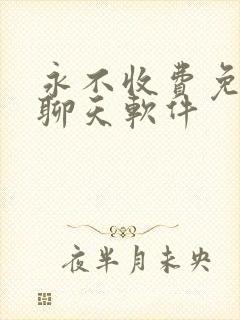 永不收費免
聊天軟件
夜半月未央